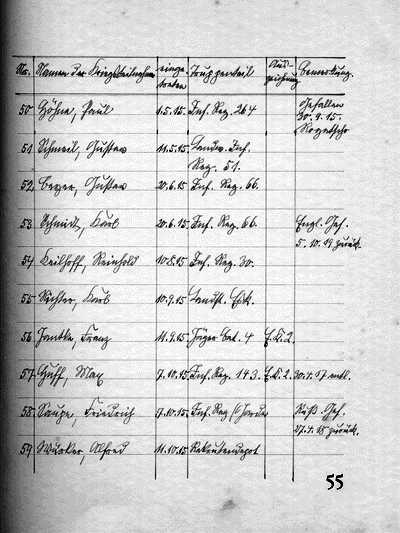 No. Namen der Kriegsteilnehmer einge- treten Truppenteil Aus- zeichnung Bemerkung.
50 Höhne, Paul 1.5.15. Inf. Reg. 264 Gefallen
30.9.15.
51 Schmeil, Gustav 11.5.15. Landw. Inf.
Reg. 51.
52 Beyer, Gustav 20.6.15 Inf. Reg. 66.
53 Schmidt, Karl 20.6.15 Inf. Reg. 66. Engl. Gef.
5.10.19 zurück.
54 Keilhoff, Reinhold 10.8.15 Inf. Reg. 30.
55 Richter, Karl 10.9.15 Landst.
56 Franz 11.9.15 Jäger Bat. 4 E.K.2.
57 Huff, Max 7.10.15 Inf. Reg. 143. E.K.2. 30.4.17 entl.
58 Saupe, Friedrich 7.10.15. Inf. Reg Russ. Gef.
27.4.18 zurück.
59 Alfred 11.10.15 Rekrutendepot
55